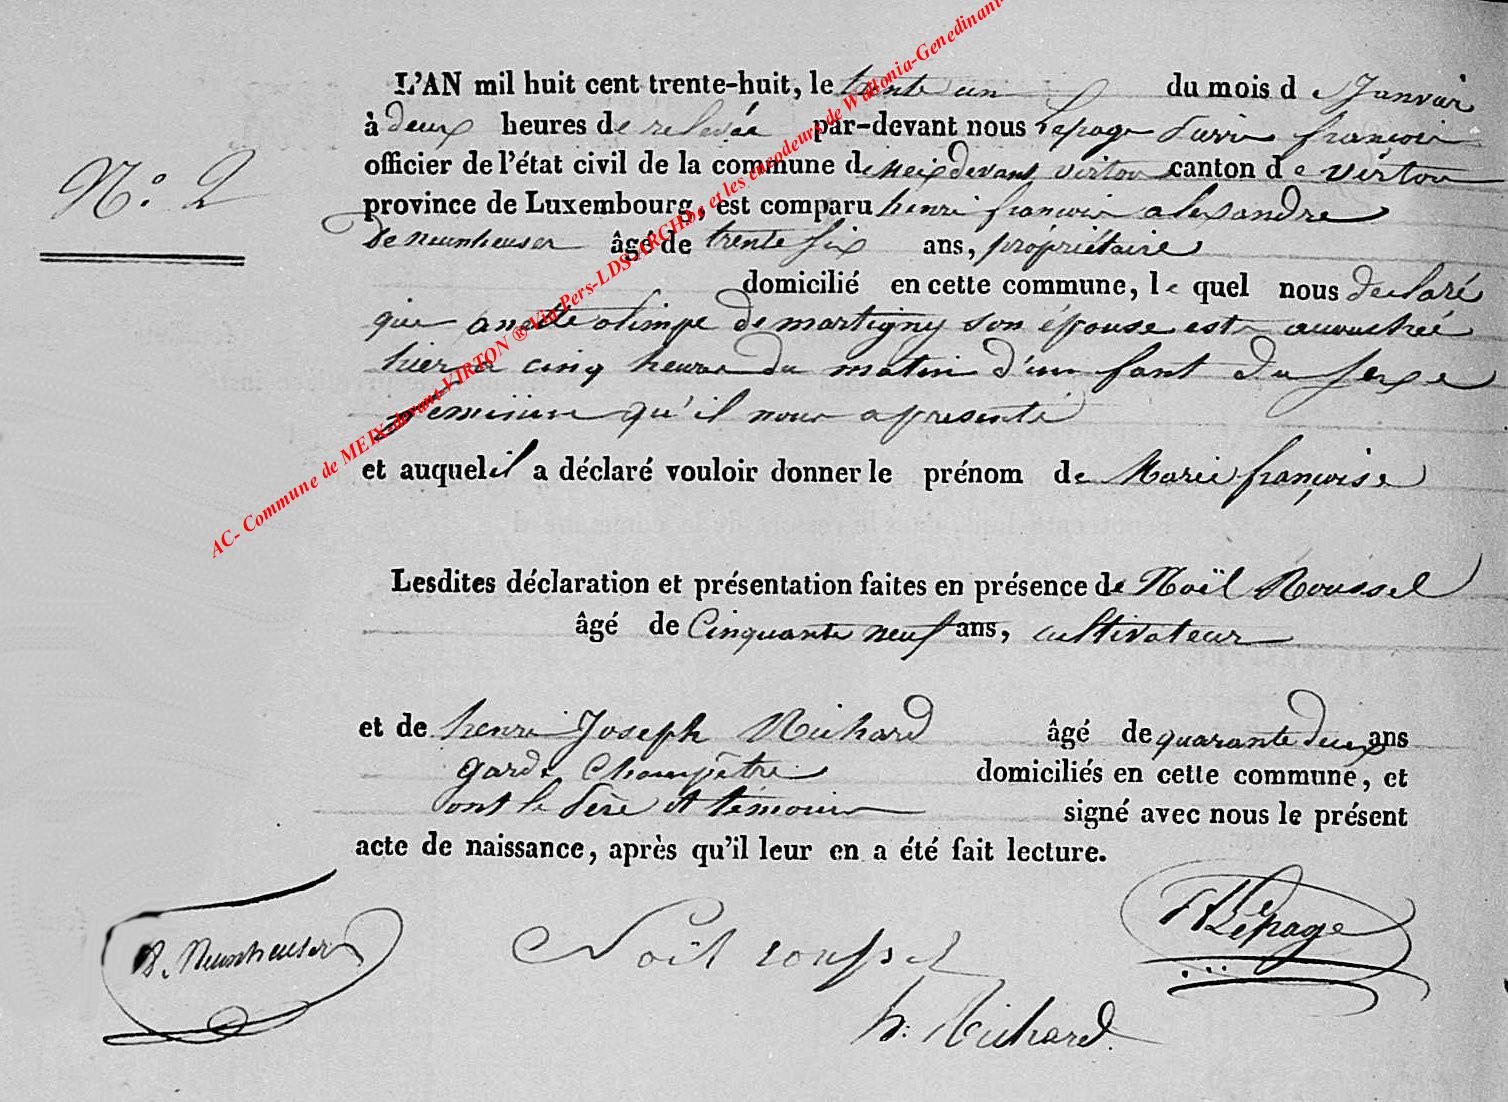 N.° 2
L'AN mil huit cent trente-huit, le trente un du mois de Janvier
à deux heures de relevée par-devant nous Lepage pierre françois
officier de l'état civil de la commune de meix devant virton canton de virton
province de Luxembourg, est comparu henri françois alexandre
De Neunheuser âgé de trente six ans, propriétaire
domicilié en cette commune, le quel nous declaré
que anette olimpe de martigny son épouse est accouchée
hier a cinq heures du matin d'un fant du sexe
feminin qu'il nous a presenté
et auquel il a déclaré vouloir donner le prénom de Marie françoise
Lesdites déclaration et présentation faites en présence de Noël Roussel
âgé de Cinquante neuf ans, cultivateur
et de henri Joseph Richard âgé de quarante deux ans
garde Champêtre domiciliés en cette commune, et
ont le Père et témoins signé avec nous le présent
acte de naissance, après qu'il leur en a été fait lecture.
D. Neunheuser
Noël roussel
Lepage
h: Richard
AC- Commune de MEIX-devant-VIRTON ® Via Pers-LDS-ARCH.be et les encodeurs de Wallonia-Genedinant